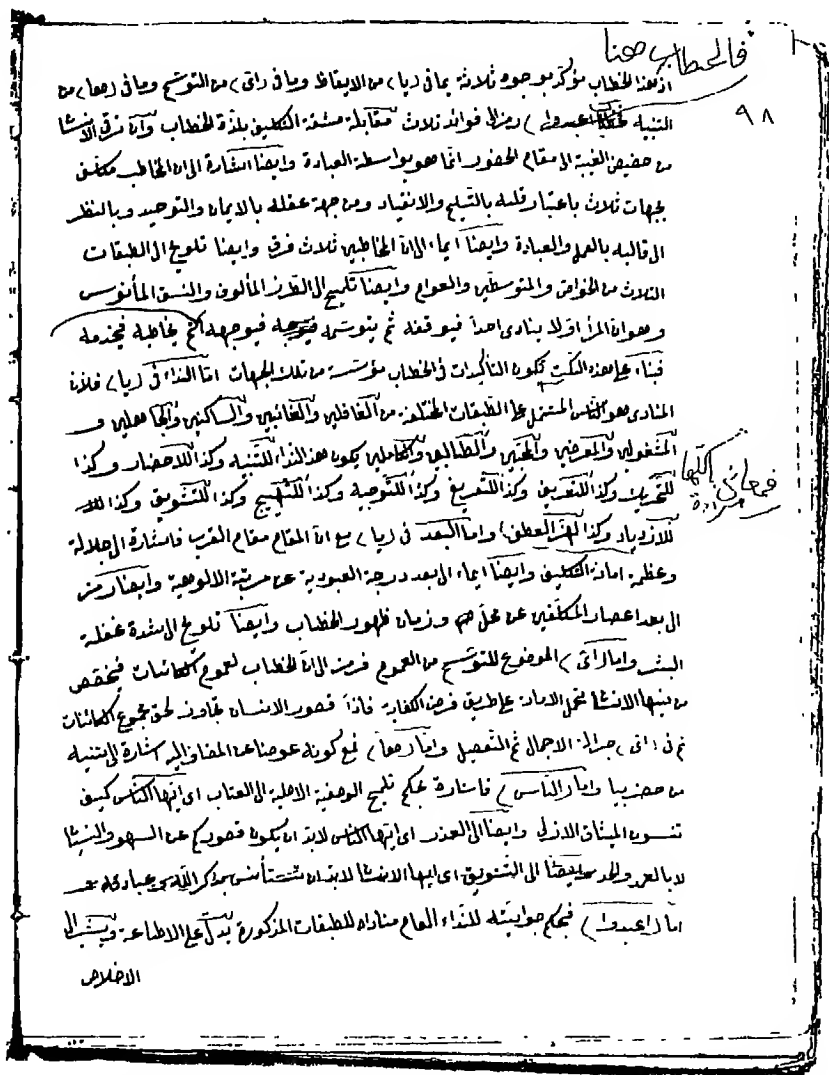 فالخطاب ههنا
٩٨
ان هذا الخطاب مؤكد بوجوه ثلاثة بما في (يا) من الايقاظ وما في (اىّ) من التوسّم وما في (ها) من
التنبيه فخطاب (اعبدوا) رمز الى فوائد ثلاث مقابلة مشقة التكليف بلذة الخطاب وانّ ترقى الانسان
من حضيض الغيبة الى مقام الحضور انما هو بواسطة العبادة وايضا اشارة الى ان المخاطب مكلف
بجهات ثلاث باعتبار قلبه بالتسليم والانقياد ومن جهة عقله بالايمان والتوحيد وبالنظر
الى قالبه بالعمل والعبادة وايضا ايماء الى انّ المخاطبين ثلاث فرق وايضا تلويح الى الطبقات
الثلاث من الخواص والمتوسطين والعوام وايضا تلميح الى الطرز المألوف والنسق المأنوس
وهو ان المرأ اوّلا ينادى احدا فيوقفه ثم يتوسّمه فيوجهه ثم يخاطبه فيخدمه
فبناء على هذه النكت تكون التأكيدات في الخطاب مؤسسة من تلك الجهات امّا النداء في (يا) فلانّ
المنادى هو الناس المشتمل على الطبقات المختلفة من الغافلين والغائبين والساكنين والجاهلين و
المشغولين والمعرضين والمحبّين والطالبين والكاملين يكون هذا النداء للتنبيه وكذا للاحضار وكذا
للتحريك وكذا للتعريف وكذا للتفريغ وكذا للتوجيه وكذا للتهييج وكذا للتشويق وكذا
للازدياد وكذا لهزّ العطف) واما البعد في (يا) مع انّ المقام مقام القرب فاشارة الى جلالة
فمعانى ياكلها مرادة
وعظمة امانة التكليف وايضا ايماء الى بعد درجة العبودية عن مرتبة الالوهية وايضا رمز
الى بعد اعصار المكلفين عن محلّ وزمان ظهور الخطاب وايضا تلويح الى شدة غفلة
البشر واما (اىّ) الموضوع للتوسّم من العموم فرمز الى انّ الخطاب لعموم الكائنات فيخصص
من بينها الانسان بتحمل الامانة على طريق فرض الكفاية فاذاً قصور الانسان تجاوز لحق مجموع الكائنات
ثم في (اىّ) جزالة الاجمال ثم التفصيل واما (ها) فمع كونه عوضا عن المضاف اليه اشارة الى تنبيه
من حضر بيا واما (الناس) فاشارة بحكم تلميح الوصفية الاصلية الى العتاب اى ايها الناس كيف
تنسون الميثاق الازلى وايضا الى العذر اى ايها الناس لابد ان يكون قصوركم عن السهو والنسيان
لا بالعمد والجد وايضا الى التشويق اى ايها الانسان لابد ان تستأنس بذكر الله
اما (اعبدوا) فبحكم جوابيته للنداء العام مناداه للطبقات المذكورة يدل على الاطاعة ويشير الى
الاخلاص